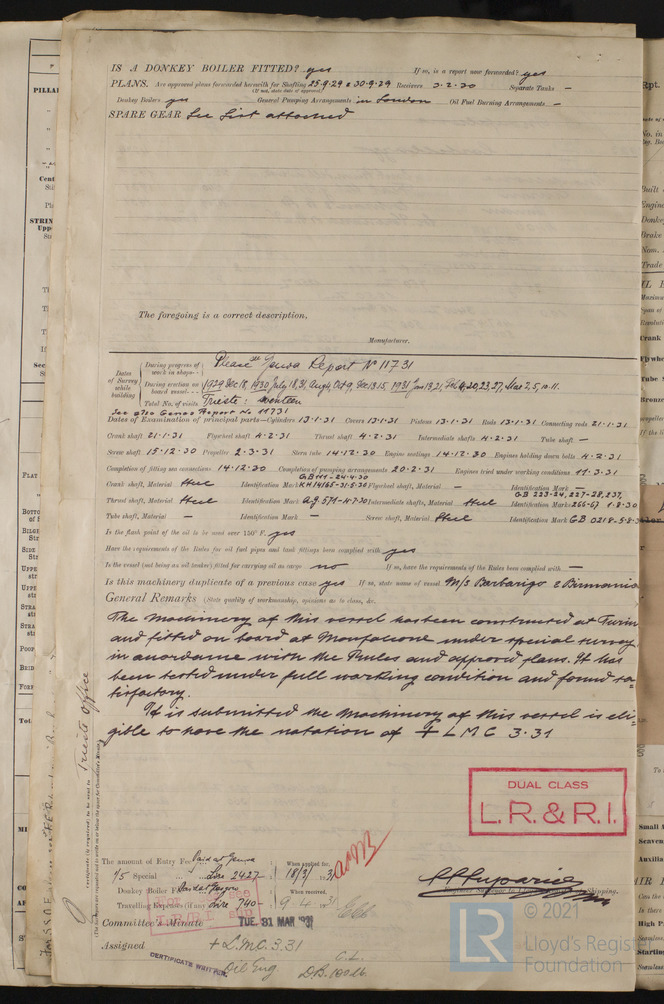 IS A DONKEY BOILER FITTED? yes If so, is a report now forwarded? yes
PLANS. Are approved plans forwarded herewith for Shafting 25.9.29 & 30.9.29 Receivers 3.2.30 Separate Tanks —
(If not, state date of approval)
Donkey Boilers yes General Pumping Arrangements in London Oil Fuel Burning Arrangements —
SPARE GEAR See List attached
The foregoing is a correct description,
Manufacturer.
Dates of Survey while building
During progress of work in shops - - Please see Genoa Report No 11731
During erection on board vessel - - - 1929 Dec 18, 1930 July 18,31, Aug 4, Oct 9, Dec 13.15. 1931 Jan 13,21, Feb 4,20,23,27, Mar 2,5,10.11.
Total No. of visits Trieste: seventeen
See also Genoa Report No 11731
Dates of Examination of principal parts—Cylinders 13.1.31 Covers 13.1.31 Pistons 13.1.31 Rods 13.1.31 Connecting rods 21.1.31
Crank shaft 21.1.31 Flywheel shaft 4.2.31 Thrust shaft 4.2.31 Intermediate shafts 4.2.31 Tube shaft —
Screw shaft 15.12.30 Propeller 2.3.31 Stern tube 14.12.30 Engine seatings 14.12.30 Engines holding down bolts 4.2.31
Completion of fitting sea connections 14.12.30 Completion of pumping arrangements 20.2.31 Engines tried under working conditions 11.3.31
Crank shaft, Material Steel Identification Mark GB111-24.4.30 KH14165-31.5.30 Flywheel shaft, Material — Identification Mark —
Thrust shaft, Material Steel Identification Mark A.G. 571-4.7.30 Intermediate shafts, Material Steel Identification Marks GB 223-24, 227-28, 237, 266-67 1.8.30
Tube shaft, Material — Identification Mark — Screw shaft, Material Steel Identification Mark GB 0218-5.8.30
Is the flash point of the oil to be used over 150° F. yes
Have the requirements of the Rules for oil fuel pipes and tank fittings been complied with yes
Is the vessel (not being an oil tanker) fitted for carrying oil as cargo no If so, have the requirements of the Rules been complied with —
Is this machinery duplicate of a previous case yes If so, state name of vessel M/S Barbarigo & Birmania
General Remarks (State quality of workmanship, opinions as to class, &c.
The machinery of this vessel has been constructed at Turin
and fitted on board at Monfalcone under special survey,
in accordance with the Rules and approved plans. It has
been tested under full working condition and found sa-
tisfactory.
It is submitted the machinery of this vessel is eli-
gible to have the notation of + L M C 3.31
DUAL CLASS
L.R. & R.I.
The amount of Entry Fee Paid at Genoa When applied for,
4/5 Special Lire 2427 18/3/31
Donkey Boiler Fee When received,
Travelling Expenses (if any) Lire 740 9 4 31
Committee's Minute TUE. 31 MAR 1931
Assigned + L.M.C. 3.31
Oil Eng C.L.
D.B. 100 lb
CERTIFICATE WRITTEN
Trieste Office
© 2021
Lloyd's Register
Foundation
LR